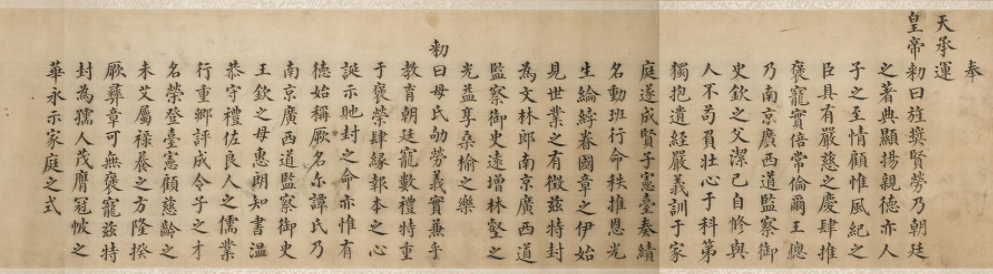 奉
天承運
皇帝勑曰旌奬賢勞乃朝廷
之著典顯揚親德亦人
子之至情顧惟風紀之
臣具有嚴慈之慶肆推
褒寵實倍常倫爾王聰
乃南京廣西道監察御
史欽之父潔己自修與
人不苟負壯心于科第
獨抱遺經嚴義訓于家
庭遂成賢子憲臺奏績
名動班行命秩推恩光
生綸綍眷國章之伊始
見世業之有徵兹特封
為文林郎南京廣西道
監察御史遠增林壑之
光益享桑榆之樂
勑曰母氏劬勞義實兼乎
教育朝廷寵數禮特重
于褒榮肆緣報本之心
誕示貤封之命亦惟有
德始稱厥名尔譚氏乃
南京廣西道監察御史
王欽之母惠朗知書溫
恭守禮佐良人之儒業
行重鄉評成令子之才
名榮登臺憲顧慈齡之
未艾屬禄養之方隆揆
厥彝章可無褒寵兹特
封為孺人茂膺冠帔之
華永示家庭之式